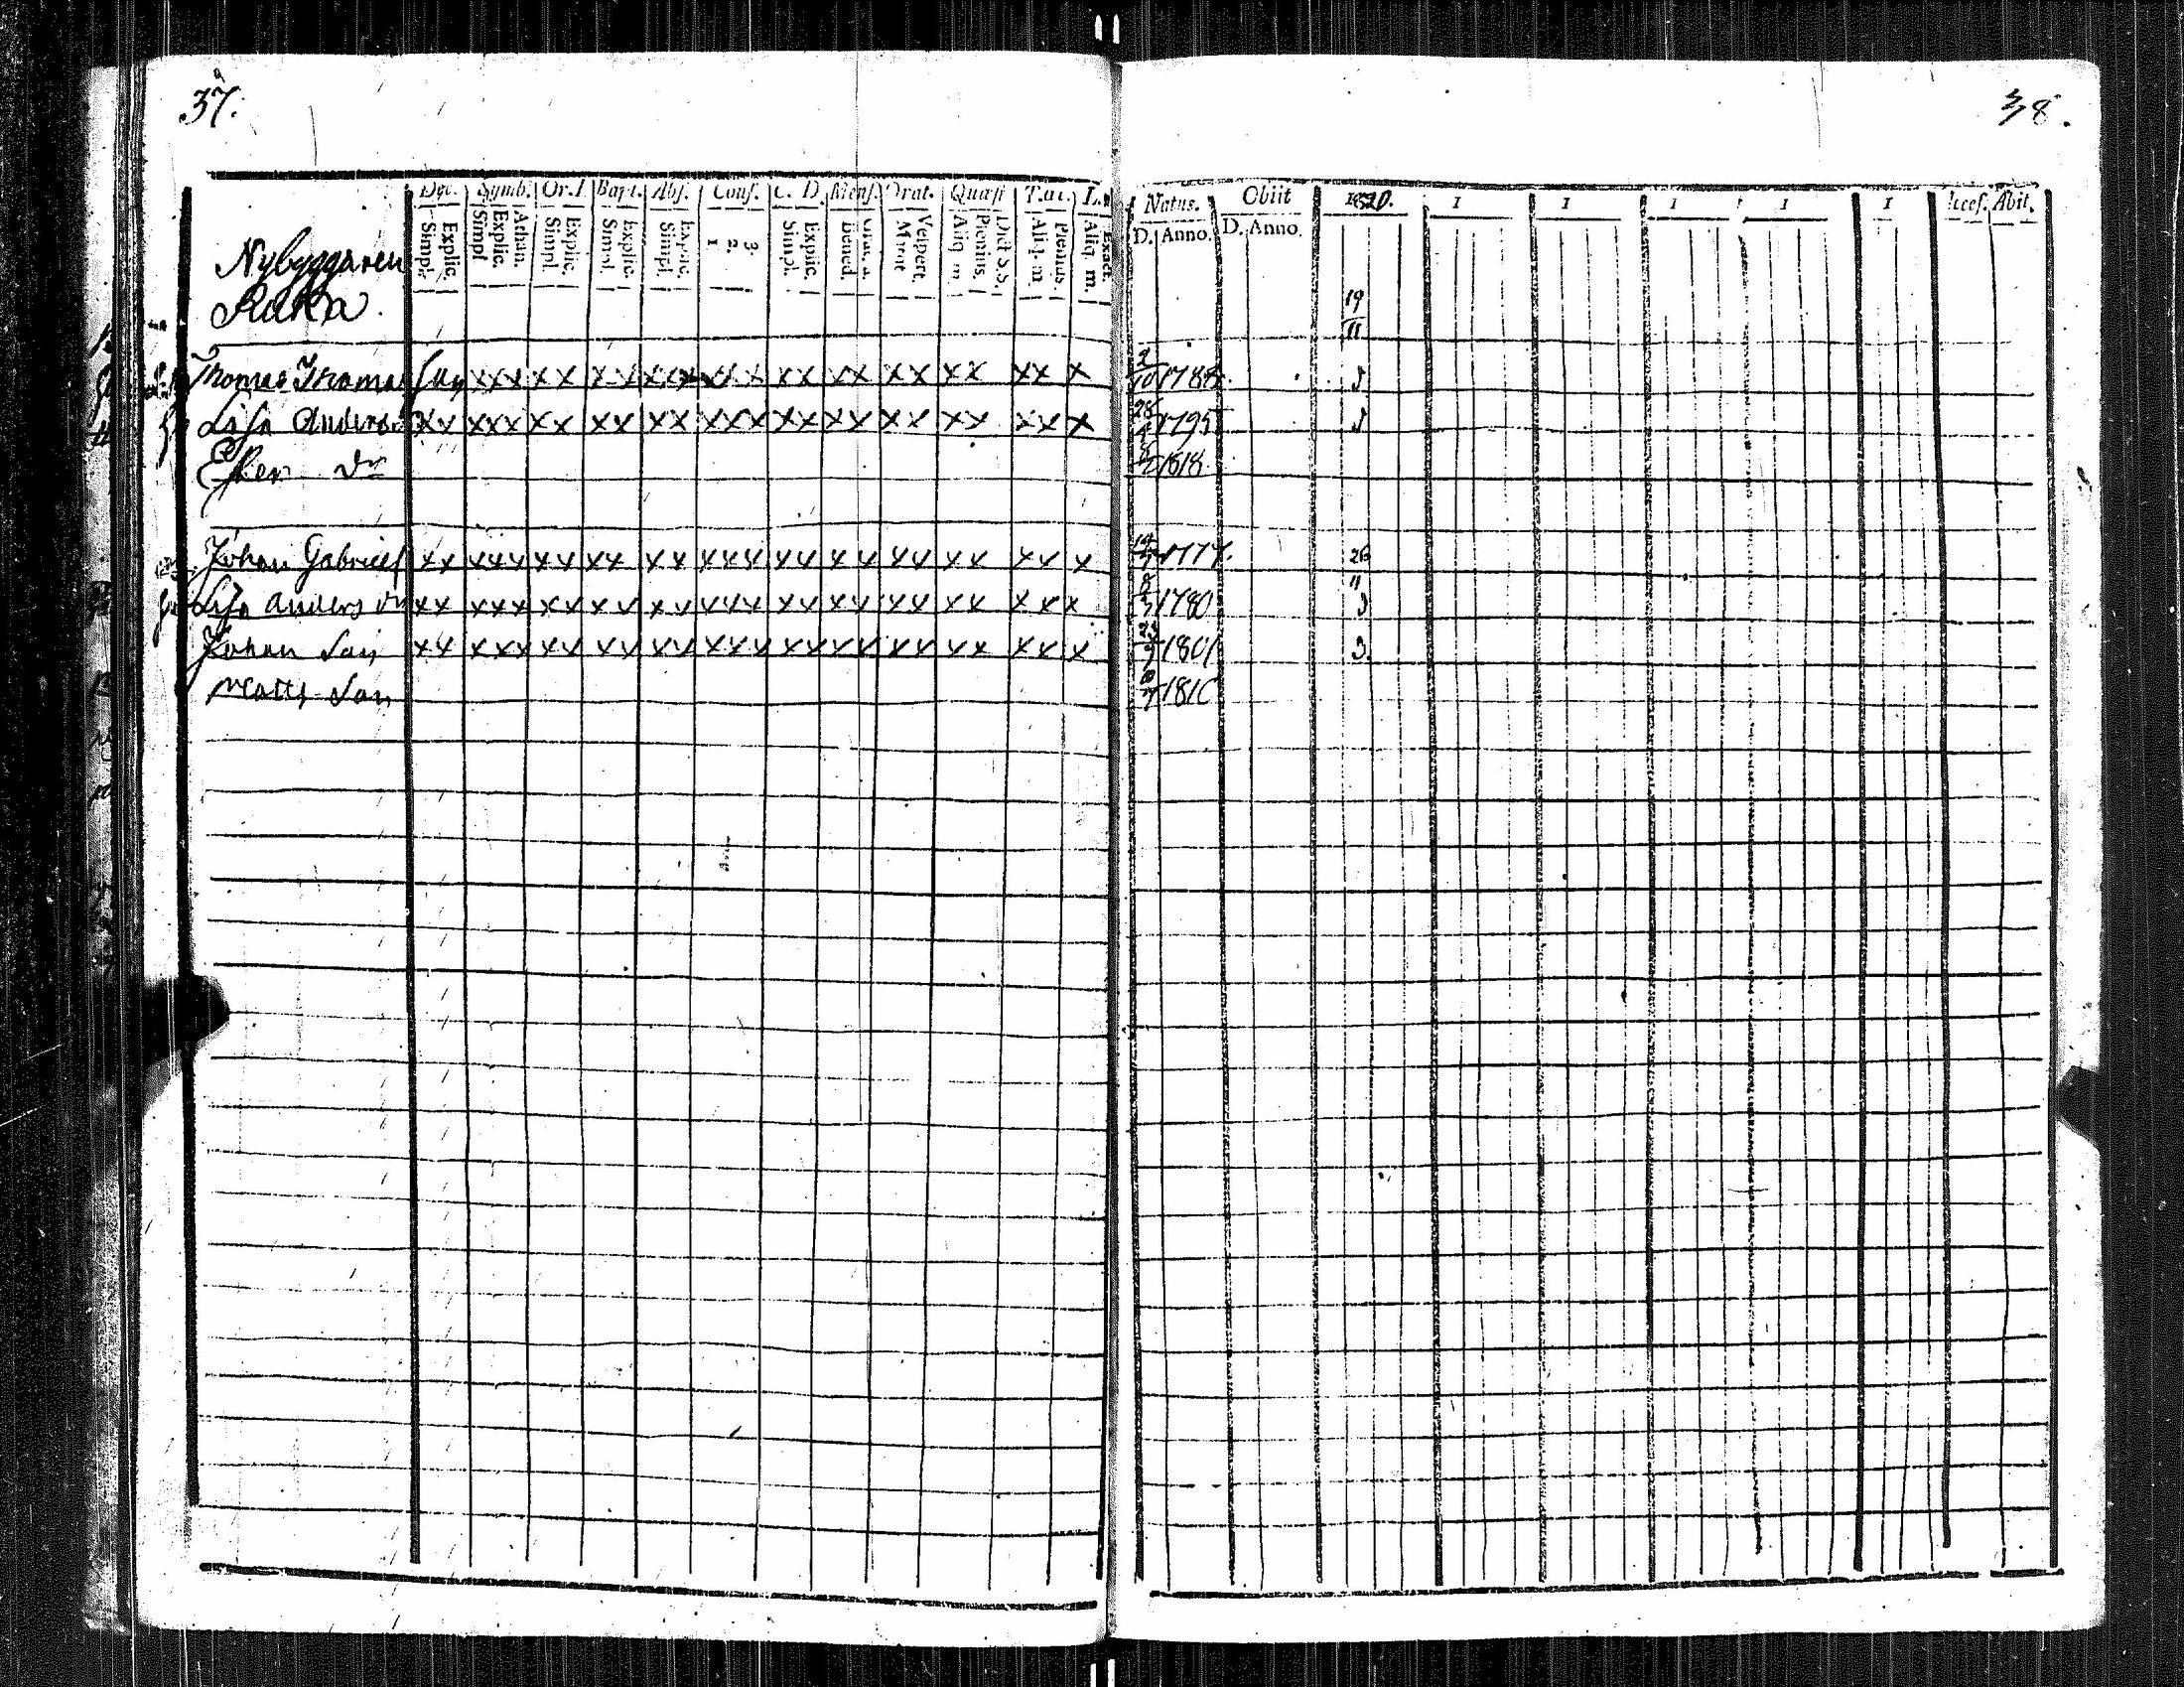 37.
38.
Dec. Symb. Or.I Bapt. Abs. Conf. C. D. Mens. Orat. Quæst T.œc.
Explic. Simpl. Athan. Explic. Simpl Explic. Simpl. Explic. Simpl. Explic. Simpl. 3. 2. 1 Explic. Simpl. Bened. Vespert. Dict S.S. Plenius. Aliq. m Plenius Aliq. m Exact. Aliq. m.
Natus. Obiit 1820. I I I I I Accef. Abit.
D. Anno. D. Anno.
Nybyggaren
Ruka.
19
11
Thomas Thomas son xxx xx xx xxx xxx xx xx xx xx xx x 2/10 1788. 3
Lisa Anders xx xxx xx xx xx xxx xx xx xx xx xx x 28 1795 3
Ester dr 8 1818
Johan Gabriel xx xxx xx xx xx xxx xx xx xx xx xx x 1777. 26
11
Lisa Anders dr xx xxx xx xx xx xxx xx xx xx xx xx x 8 1780 3
Johan Son xx xxx xx xx xx xxx xx xx xx xx xx x 1801 3.
Matts Son 1810